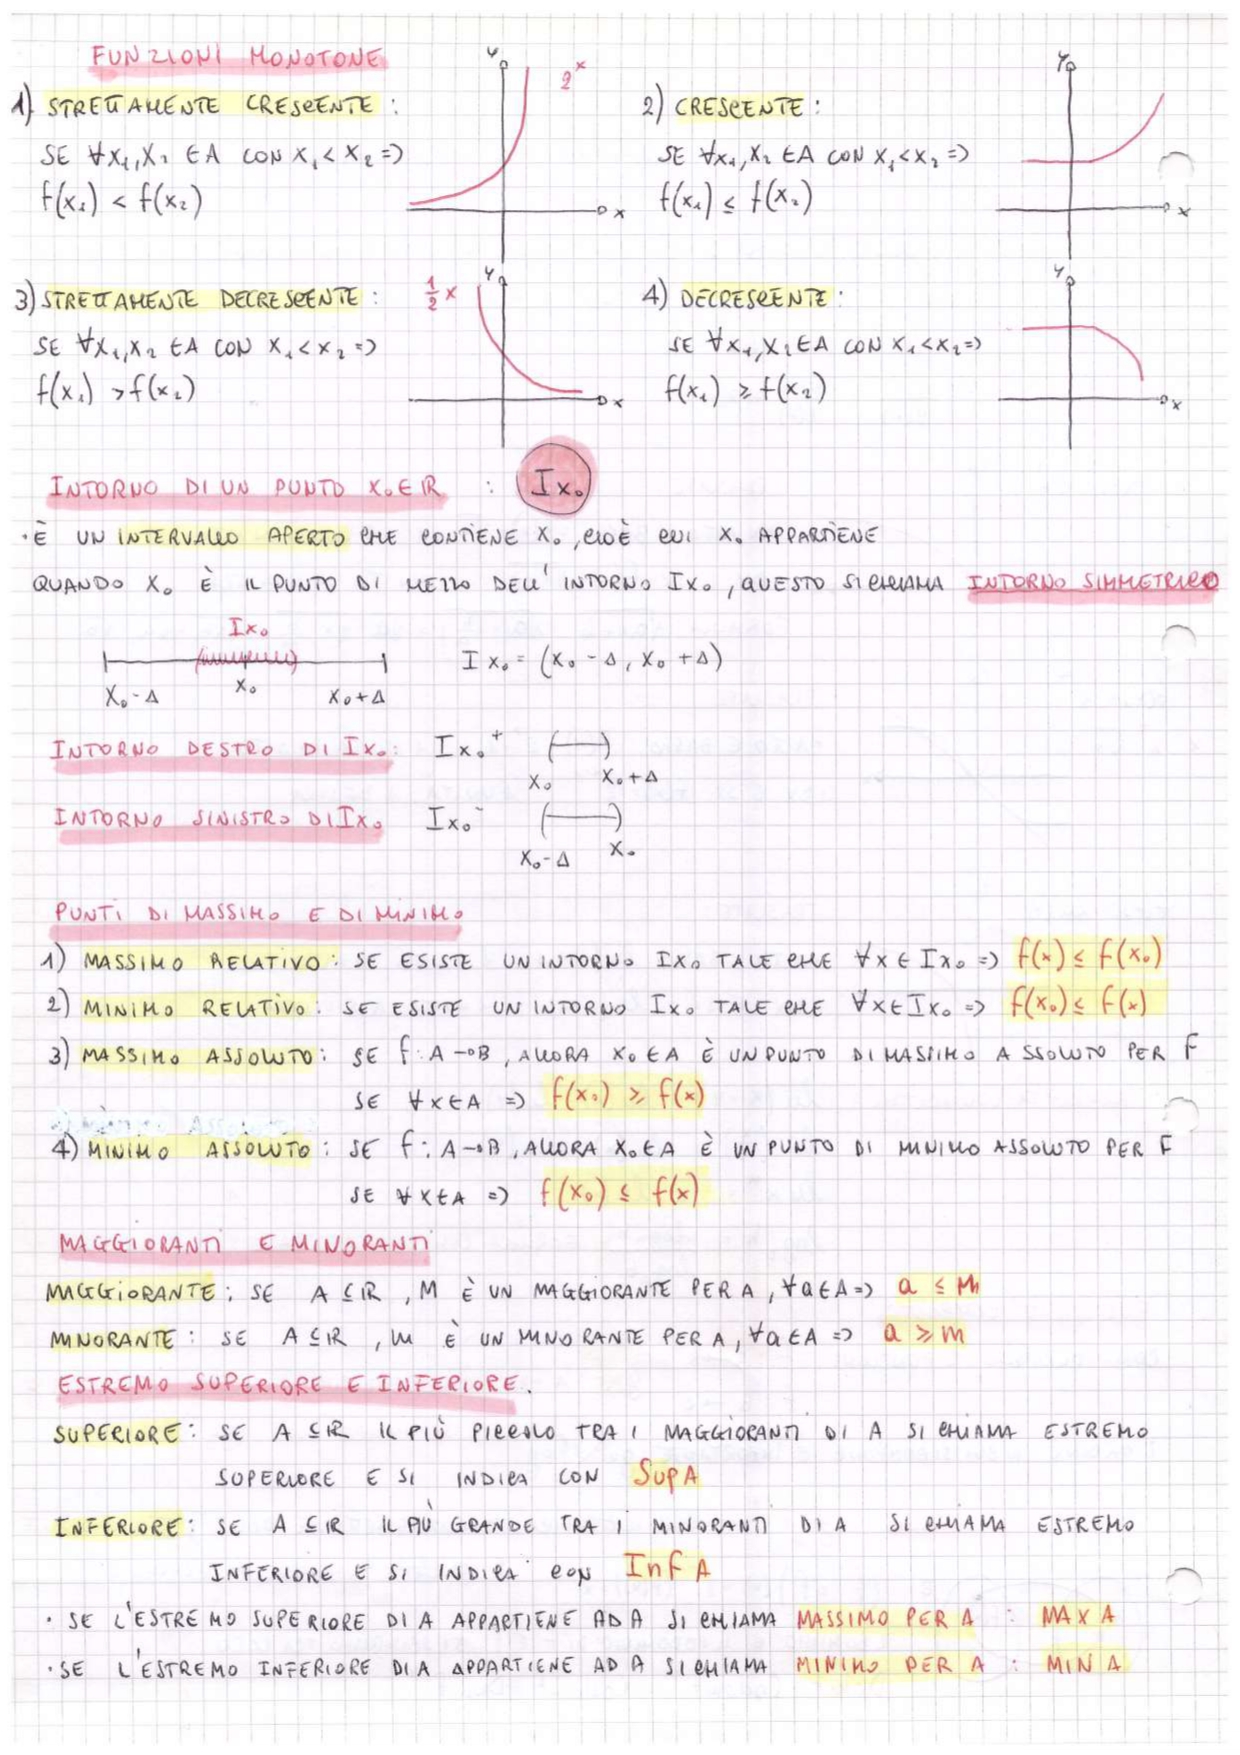 FUNZIONI MONOTONE
1) STRETTAMENTE CRESCENTE :
SE ∀x₁,x₂ ∈A CON x₁< x₂ =>
f(x₁) < f(x₂)
y
2ˣ
x
2) CRESCENTE :
SE ∀x₁,x₂ ∈A CON x₁<x₂ =>
f(x₁) ≤ f(x₂)
y
x
3) STRETTAMENTE DECRESCENTE :
SE ∀x₁,x₂ ∈A CON x₁<x₂ =>
f(x₁) >f(x₂)
1/2 x
y
x
4) DECRESCENTE :
SE ∀x₁,x₂∈A CON x₁<x₂=>
f(x₁) ≥ f(x₂)
y
x
INTORNO DI UN PUNTO X₀∈ℝ : Ix₀
· È UN INTERVALLO APERTO CHE CONTIENE X₀ , CIOÈ CUI X₀ APPARTIENE
QUANDO X₀ È IL PUNTO DI MEZZO DELL' INTORNO Ix₀ , QUESTO SI CHIAMA INTORNO SIMMETRICO
Ix₀
X₀-Δ X₀ X₀+Δ
Ix₀= (x₀ - Δ, x₀ +Δ)
INTORNO DESTRO DI Ix₀: Ix₀⁺
X₀ X₀+Δ
INTORNO SINISTRO DI Ix₀ Ix₀⁻
X₀-Δ X₀
PUNTI DI MASSIMO E DI MINIMO
1) MASSIMO RELATIVO : SE ESISTE UN INTORNO Ix₀ TALE CHE ∀x∈Ix₀ => f(x) ≤ f(x₀)
2) MINIMO RELATIVO : SE ESISTE UN INTORNO Ix₀ TALE CHE ∀x∈Ix₀ => f(x₀) ≤ f(x)
3) MASSIMO ASSOLUTO : SE f: A→B , ALLORA X₀∈A È UN PUNTO DI MASSIMO ASSOLUTO PER F
SE ∀x∈A => f(x₀) ≥ f(x)
4) MINIMO ASSOLUTO : SE f: A→B , ALLORA X₀∈A È UN PUNTO DI MINIMO ASSOLUTO PER F
SE ∀x∈A => f(x₀) ≤ f(x)
MAGGIORANTI E MINORANTI
MAGGIORANTE : SE A ⊆ℝ , M È UN MAGGIORANTE PER A , ∀a∈A=> a ≤ M
MINORANTE : SE A ⊆ℝ , m È UN MINORANTE PER A , ∀a∈A => a ≥ m
ESTREMO SUPERIORE E INFERIORE.
SUPERIORE : SE A ⊆ℝ IL PIÙ PICCOLO TRA I MAGGIORANTI DI A SI CHIAMA ESTREMO
SUPERIORE E SI INDICA CON SupA
INFERIORE : SE A ⊆ℝ IL PIÙ GRANDE TRA I MINORANTI DI A SI CHIAMA ESTREMO
INFERIORE E SI INDICA CON Inf A
· SE L'ESTREMO SUPERIORE DI A APPARTIENE AD A SI CHIAMA MASSIMO PER A : MAX A
· SE L'ESTREMO INFERIORE DI A APPARTIENE AD A SI CHIAMA MINIMO PER A : MIN A